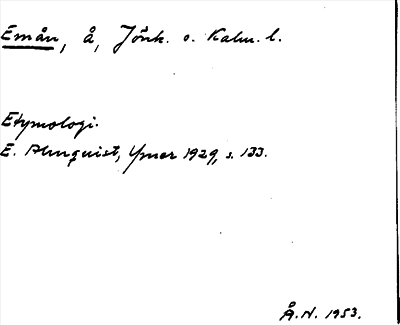 Emån, å, Jönk. o. Kalm. l.
Etymologi.
E. Almquist, Ymer 1929, s. 133.
Å.N. 1953.